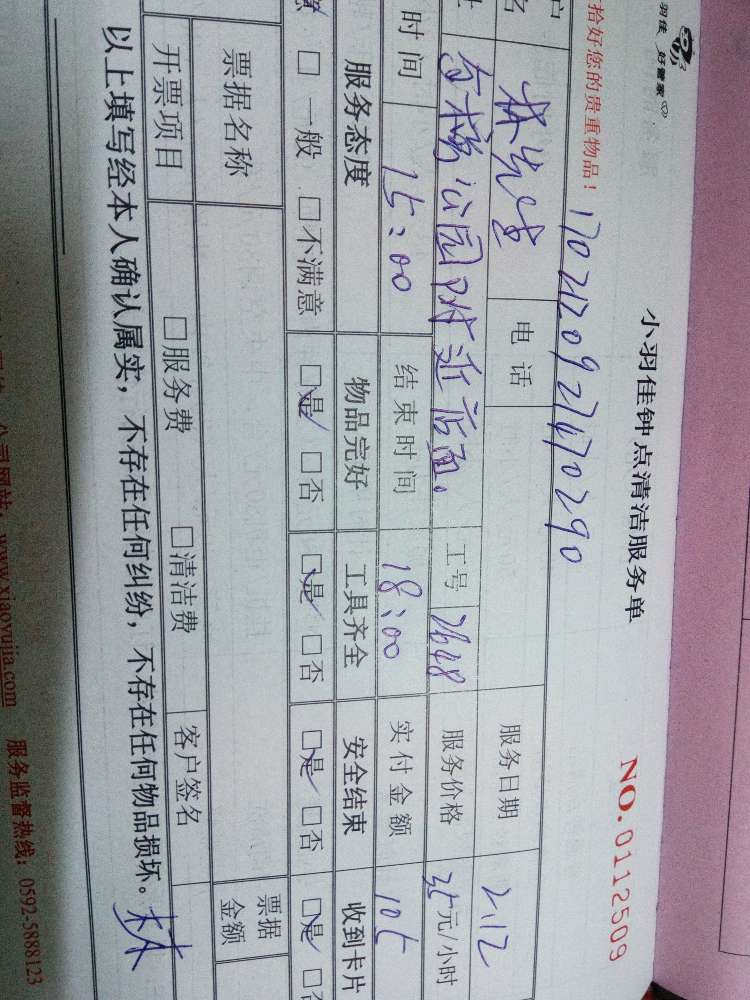 羽佳 好管家
小羽佳钟点清洁服务单
NO.0112509
拾好您的贵重物品！
1702120927470290
户名 林先生 电话 服务日期 2.12
公园附近店面。 工号 2648 服务价格 35元/小时
时间 15:00 结束时间 18:00 实付金额 105
服务态度 物品完好 工具齐全 安全结束 收到卡片
意 □一般 □不满意 □是 □否 □是 □否 □是 □否 □是 □否
票据名称 票据金额
开票项目 □服务费 □清洁费 客户签名
以上填写经本人确认属实，不存在任何纠纷，不存在任何物品损坏。 林
公司网站：www.xiaoyujia.com 服务监督热线：0592-5888123